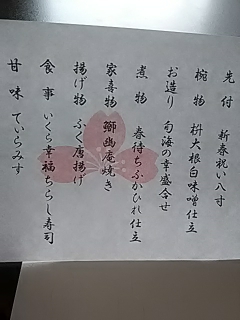 先付 新春祝い八寸
椀物 卅大根白味噌仕立
お造り 旬海の幸盛合せ
煮物 春待ちふかひれ仕立
家喜物 鰤幽庵焼き
揚げ物 ふく唐揚げ
食事 いくら幸福ちらし寿司
甘味 てぃらみす